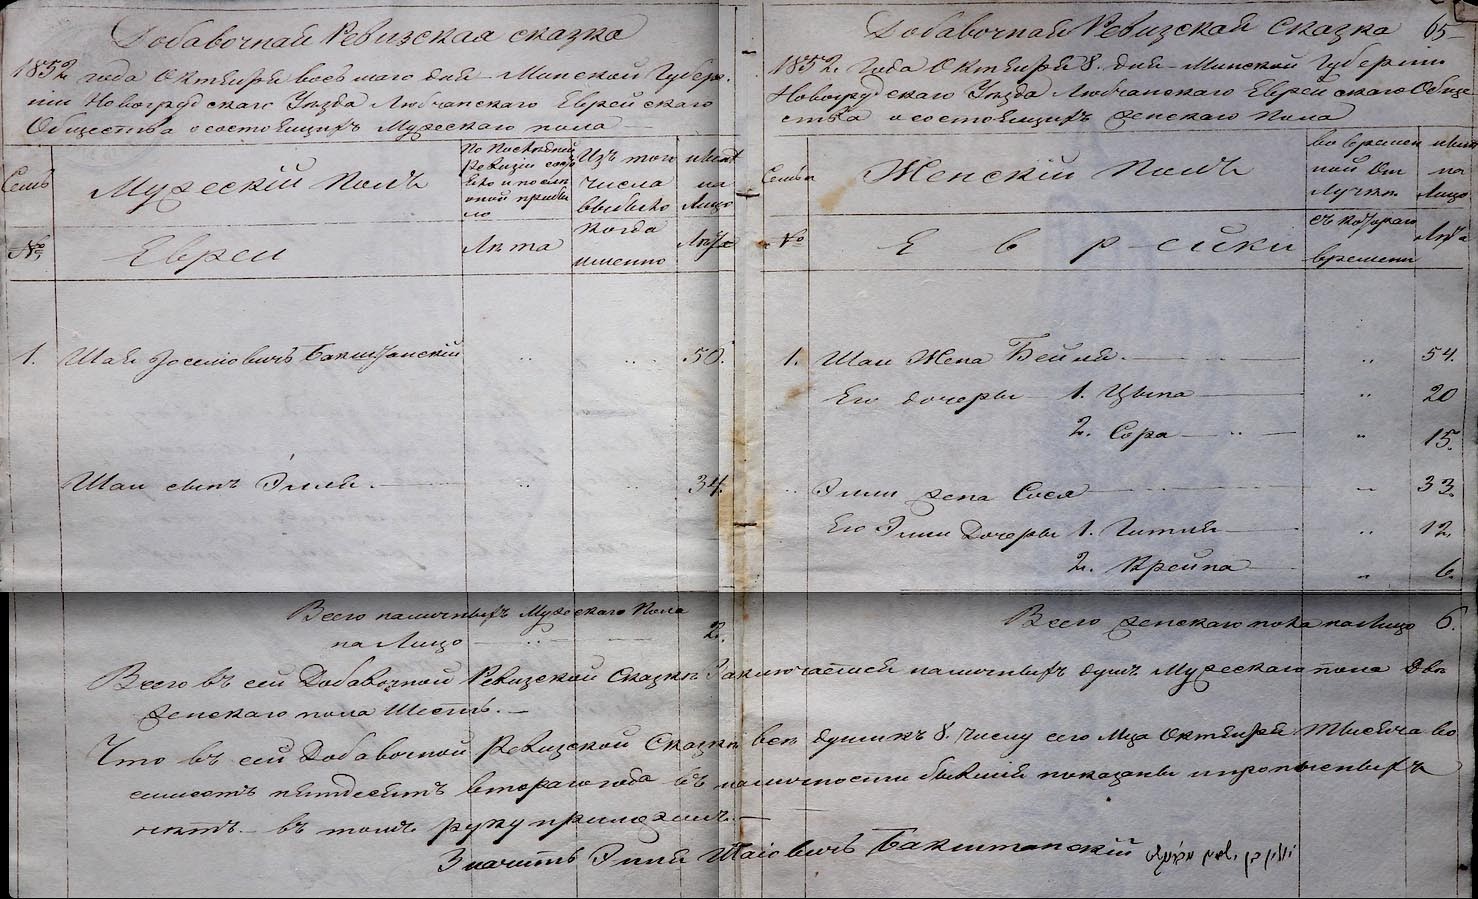 Добавочная Ревизская сказка
1852 года Октября восьмаго дня Минской Губер-
нии Новогрудскаго Уѣзда Любчанскаго Еврейскаго
Общества о состоящихъ Мужескаго пола
Семьи
Мужескій Полъ
По Послѣдней Ревизіи состояло и послѣ оной прибыло
Изъ того числа выбыло
нынѣ на Лицо
№
Евреи
Лѣта
Когда именно
Лѣта
1. Шая Іоселіовичъ Бакштанскій 50.
Шаи сынъ Эллія 34.
Всего наличныхъ Мужескаго Пола
на Лицо 2.
Добавочная Ревизская Сказка 65
1852. Года Октября 8. дня Минской Губерніи
Новогрудскаго Уѣзда Любчанскаго Еврейскаго Обще-
ства о состоящихъ женскаго Пола
Семьи
Женскій Полъ
во времен ной От лучкѣ
нынѣ на Лицо
№
Еврейки
съ котораго времени
Лѣта
1. Шаи Жена Бейня 54.
Его дочеры 1. Цыпа 20
2. Сора 15.
Эллии жена Сося 33.
Его Эллии Дочеры 1. Гитля 12.
2. Крейна 6.
Всего женскаго пола на Лицо 6.
Всего въ сей Добавочной Ревизской Сказкѣ Заключается наличныхъ душъ Мужескаго пола Двѣ
женскаго пола Шесть.
Что въ сей Добавочной Ревизской Сказкѣ всѣ души къ 8. числу сего Мца Октября Тысяча во
семьсотъ пятдесятъ втораго года въ наличности бывшія показаны и пропускныхъ
нѣтъ. въ томъ руку приложилъ.
Значитъ Эллія Шаіовичъ Бакштанскій